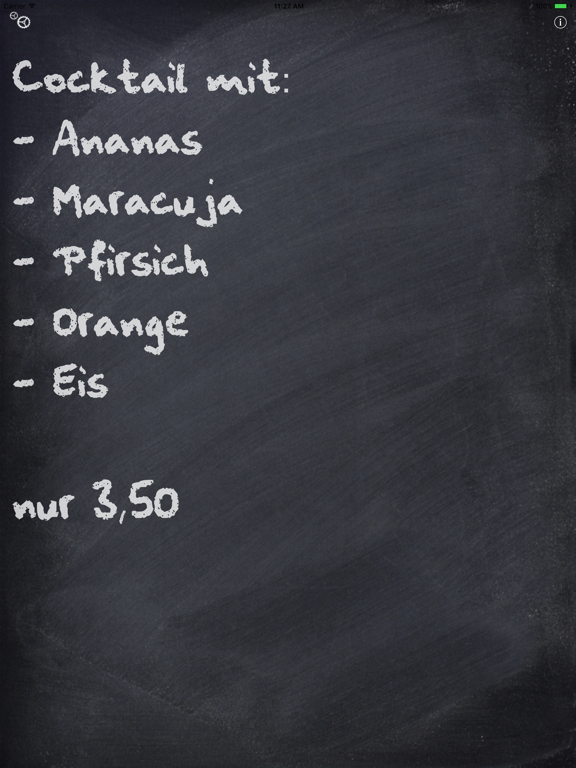 11:27 AM
Cocktail mit:
- Ananas
- Maracuja
- Pfirsich
- Orange
- Eis
nur 3,50